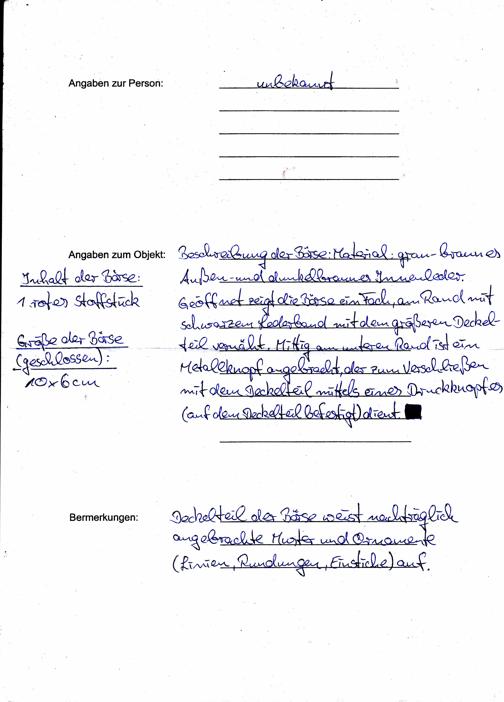 Angaben zur Person: unbekannt
Angaben zum Objekt: Beschreibung der Börse: Material: grau-braunes
Außen- und dunkelbraunes Innenleder.
Geöffnet zeigt die Börse ein Fach, am Rand mit
schwarzem Lederband mit dem größeren Deckel-
teil vernäht. Mittig am unteren Rand ist ein
Metallknopf angebracht, der zum Verschließen
mit dem Deckelteil mittels eines Druckknopfes
(auf dem Deckelteil befestigt) dient.
Inhalt der Börse:
1 rotes Stoffstück
Größe der Börse
(geschlossen):
10x6cm
Bermerkungen: Deckelteil der Börse weist nachträglich
angebrachte Muster und Ornamente
(Linien, Rundungen, Einstiche) auf.